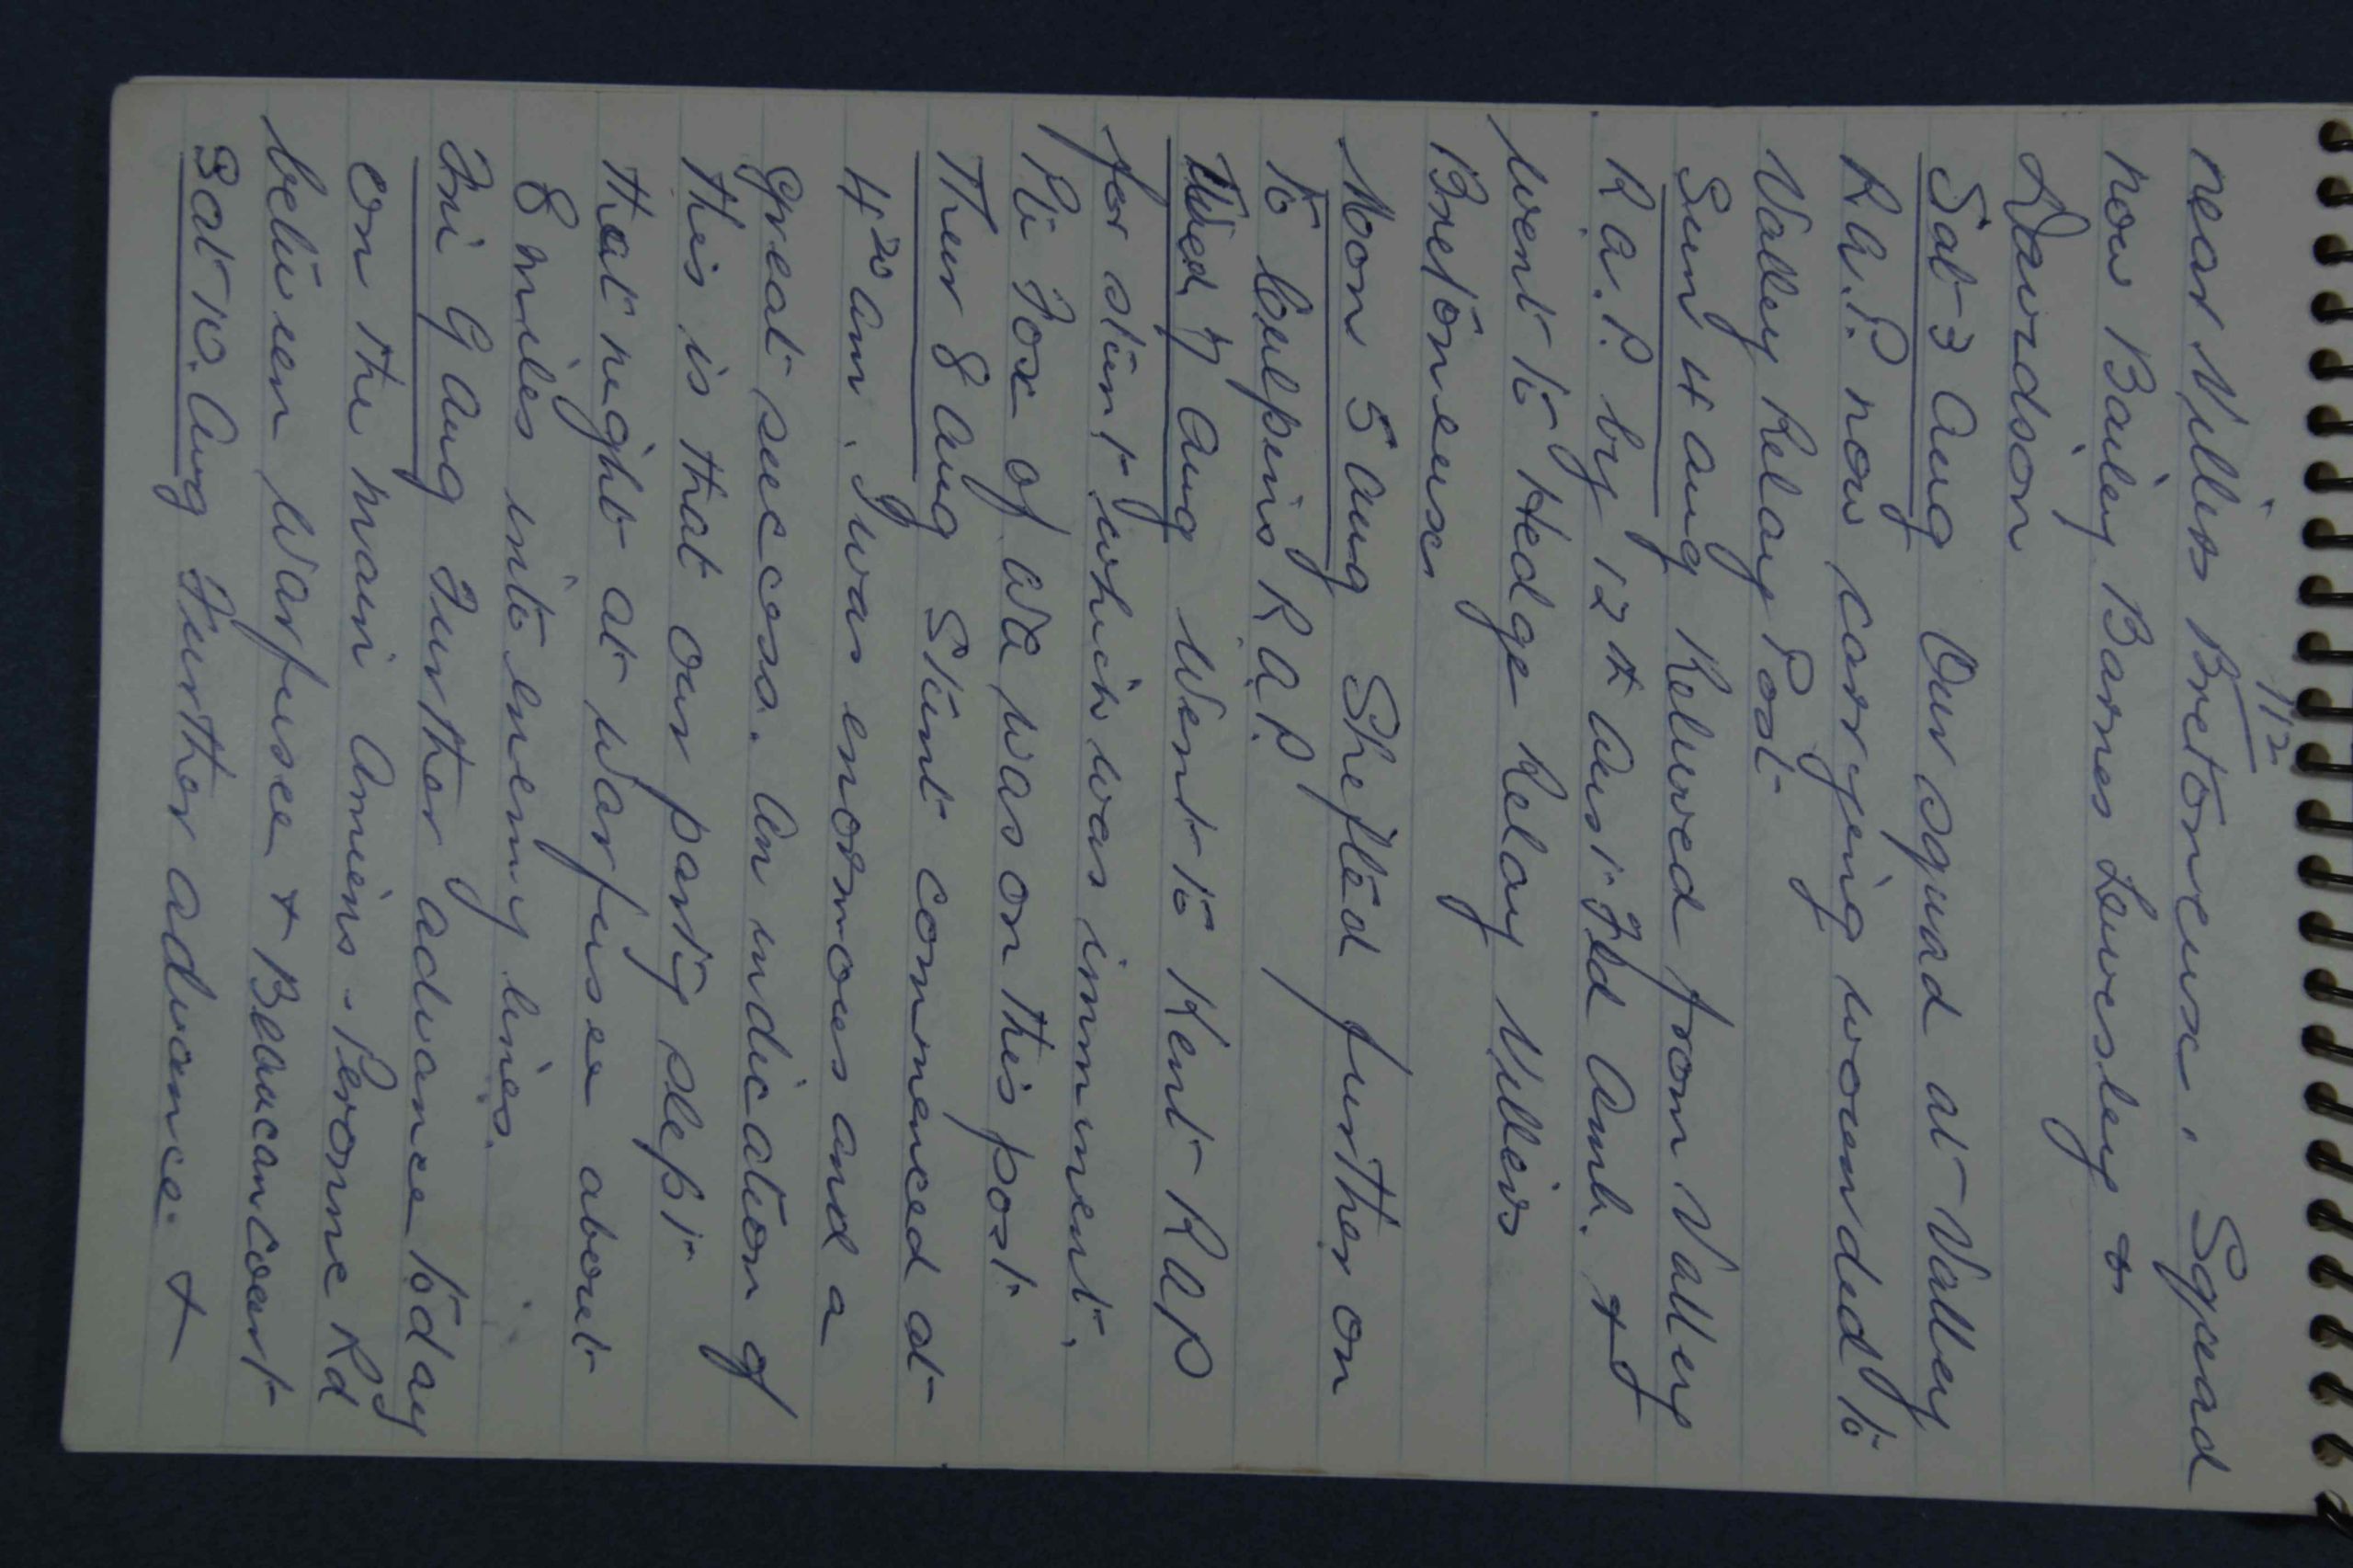 112
near Villers Bretoneux. Squad
now Bailey Barnes Lewisley &
Davidson
Sat 3 Aug Our squad at Valley
R.A.P. now carrying wounded to
Valley Relay Post
Sun 4 Aug Relived from Valley
R.A.P. by 12th Aust Fld Amb. &
went to Hedge Relay Villers
Bretoneux
Mon 5 Aug Shifted further on
to Coulpins R.A.P.
Wed 7 Aug Went to Kent RAP
for stunt which was imminent.
Pte Fox of was on this post
Thur 8 Aug Stunt commenced at
4 20 am. I was enormous and a
great success. An indication of
this is that our party slept
that night at Warfusee about
8 miles into enemy lines.
Fri 9 Aug Further advance today
on the main Amiens - Peronne Rd
between Warfusee & Beaucancourt
Sat 10. Aug Further advance. &